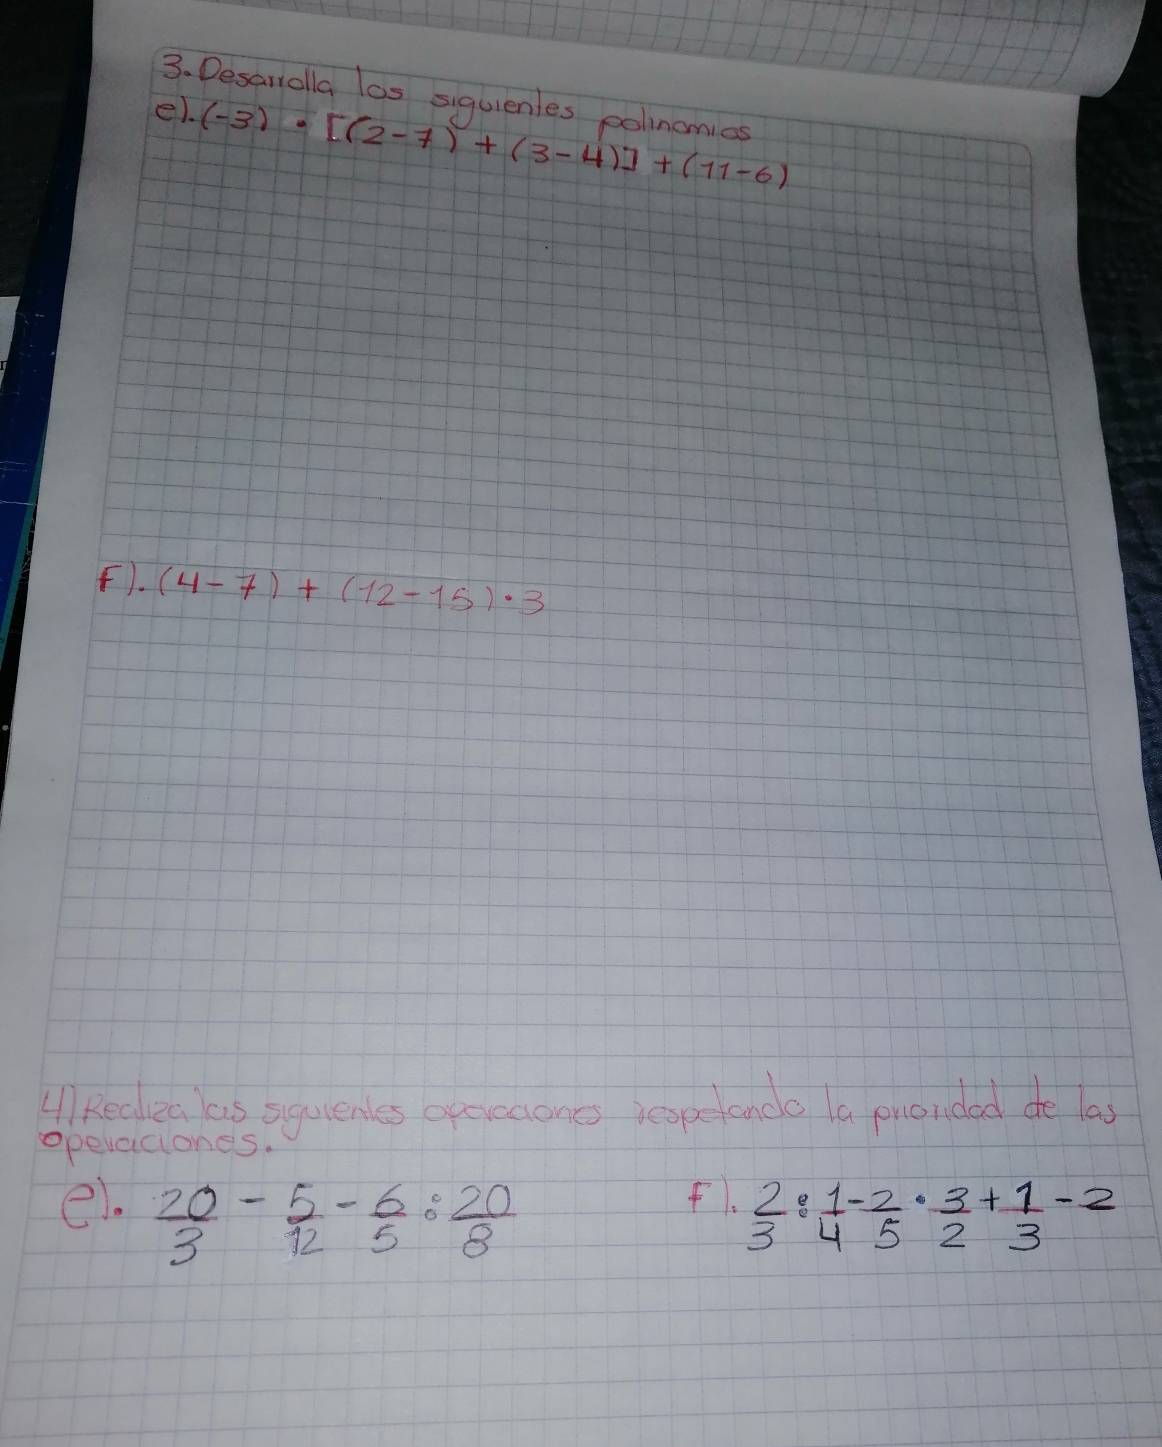 3. Desarrolla los siguientes polinomios
e). (-3) · [(2-7) + (3-4)] + (11-6)
F). (4-7) + (12-15) · 3
4) Realiza las siguientes operaciones respetando la prioridad de las
operaciones.
e). 20/3 - 5/12 - 6/5 : 20/8
F). 2/3 : 1/4 - 2/5 · 3/2 + 1/3 - 2